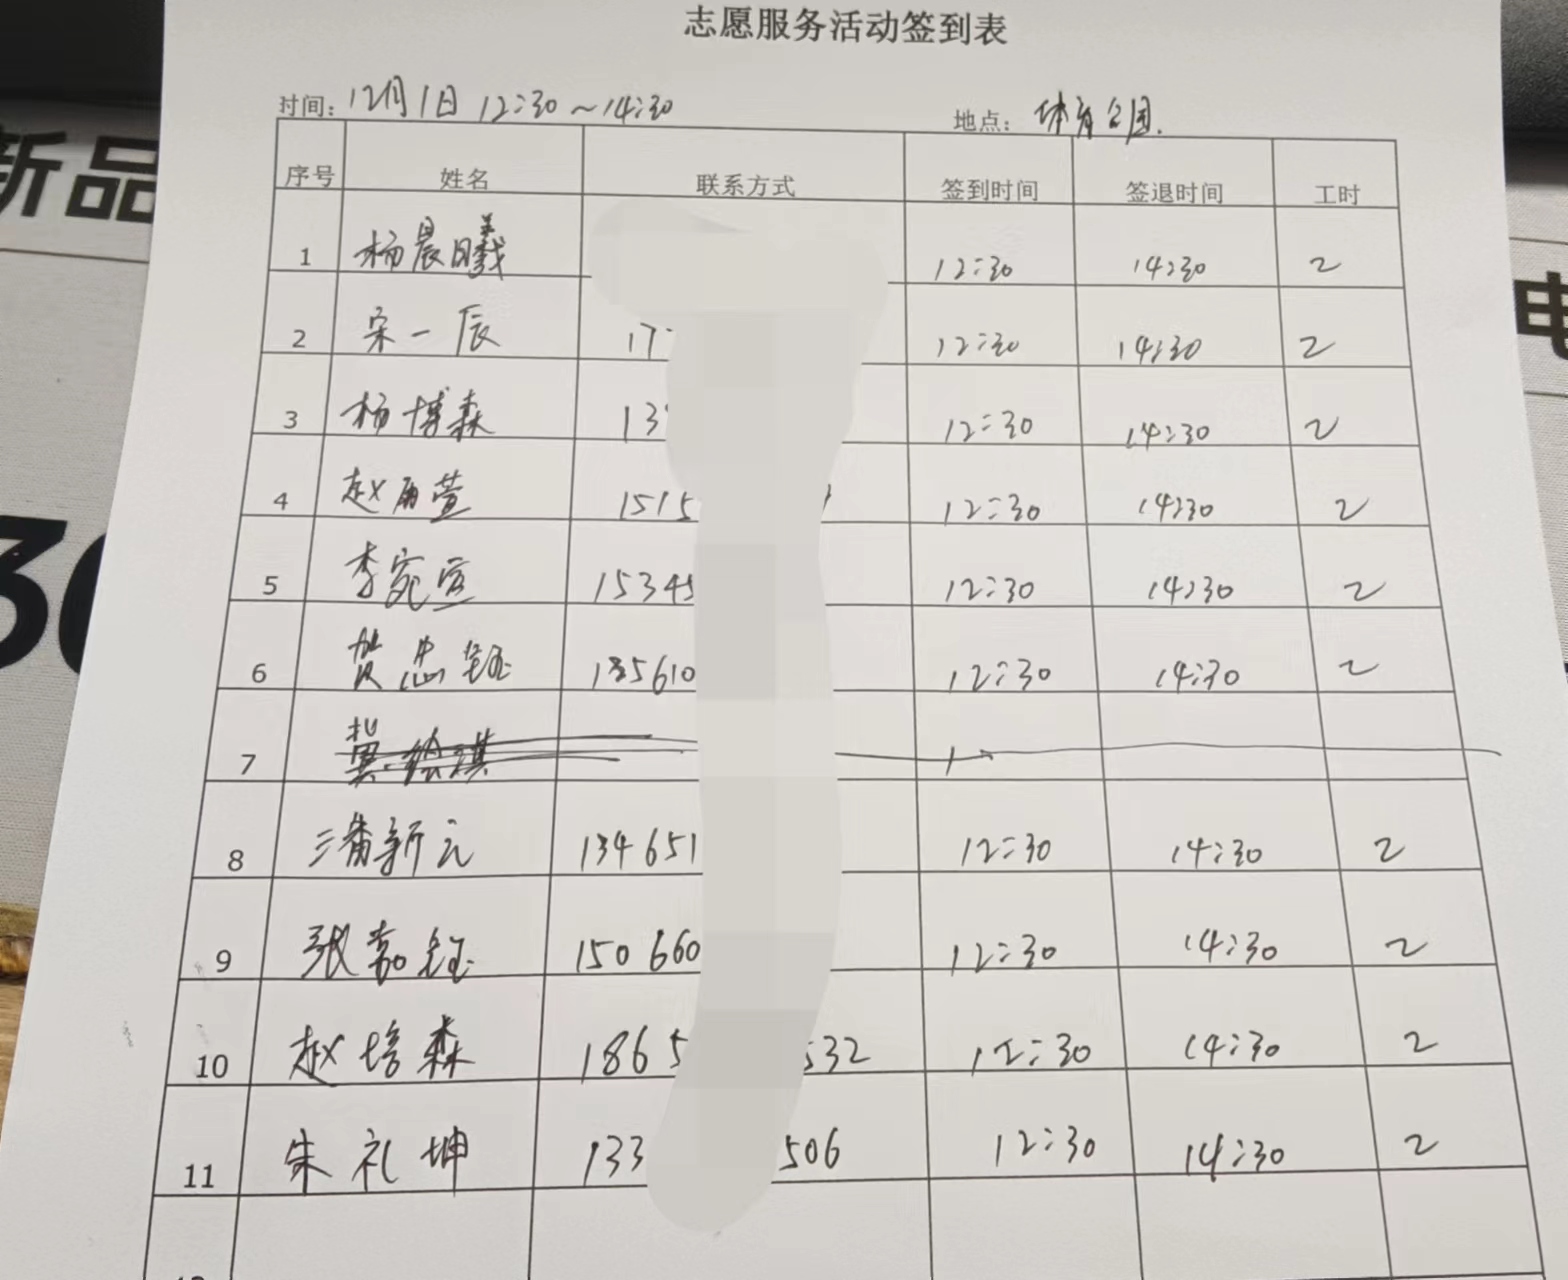 志愿服务活动签到表
时间：12月1日 12:30～14:30 地点：体育公园.
序号 姓名 联系方式 签到时间 签退时间 工时
1 杨晨曦 12:30 14:30 2
2 宋一辰 17 12:30 14:30 2
3 杨博森 13 12:30 14:30 2
4 赵雨萱 1515 12:30 14:30 2
5 李宛宣 15345 12:30 14:30 2
6 贺忠钰 135610 12:30 14:30 2
7
8 新元 134651 12:30 14:30 2
9 张嘉钰 150660 12:30 14:30 2
10 赵培森 1865 532 12:30 14:30 2
11 朱礼坤 133 506 12:30 14:30 2
新品
30
电